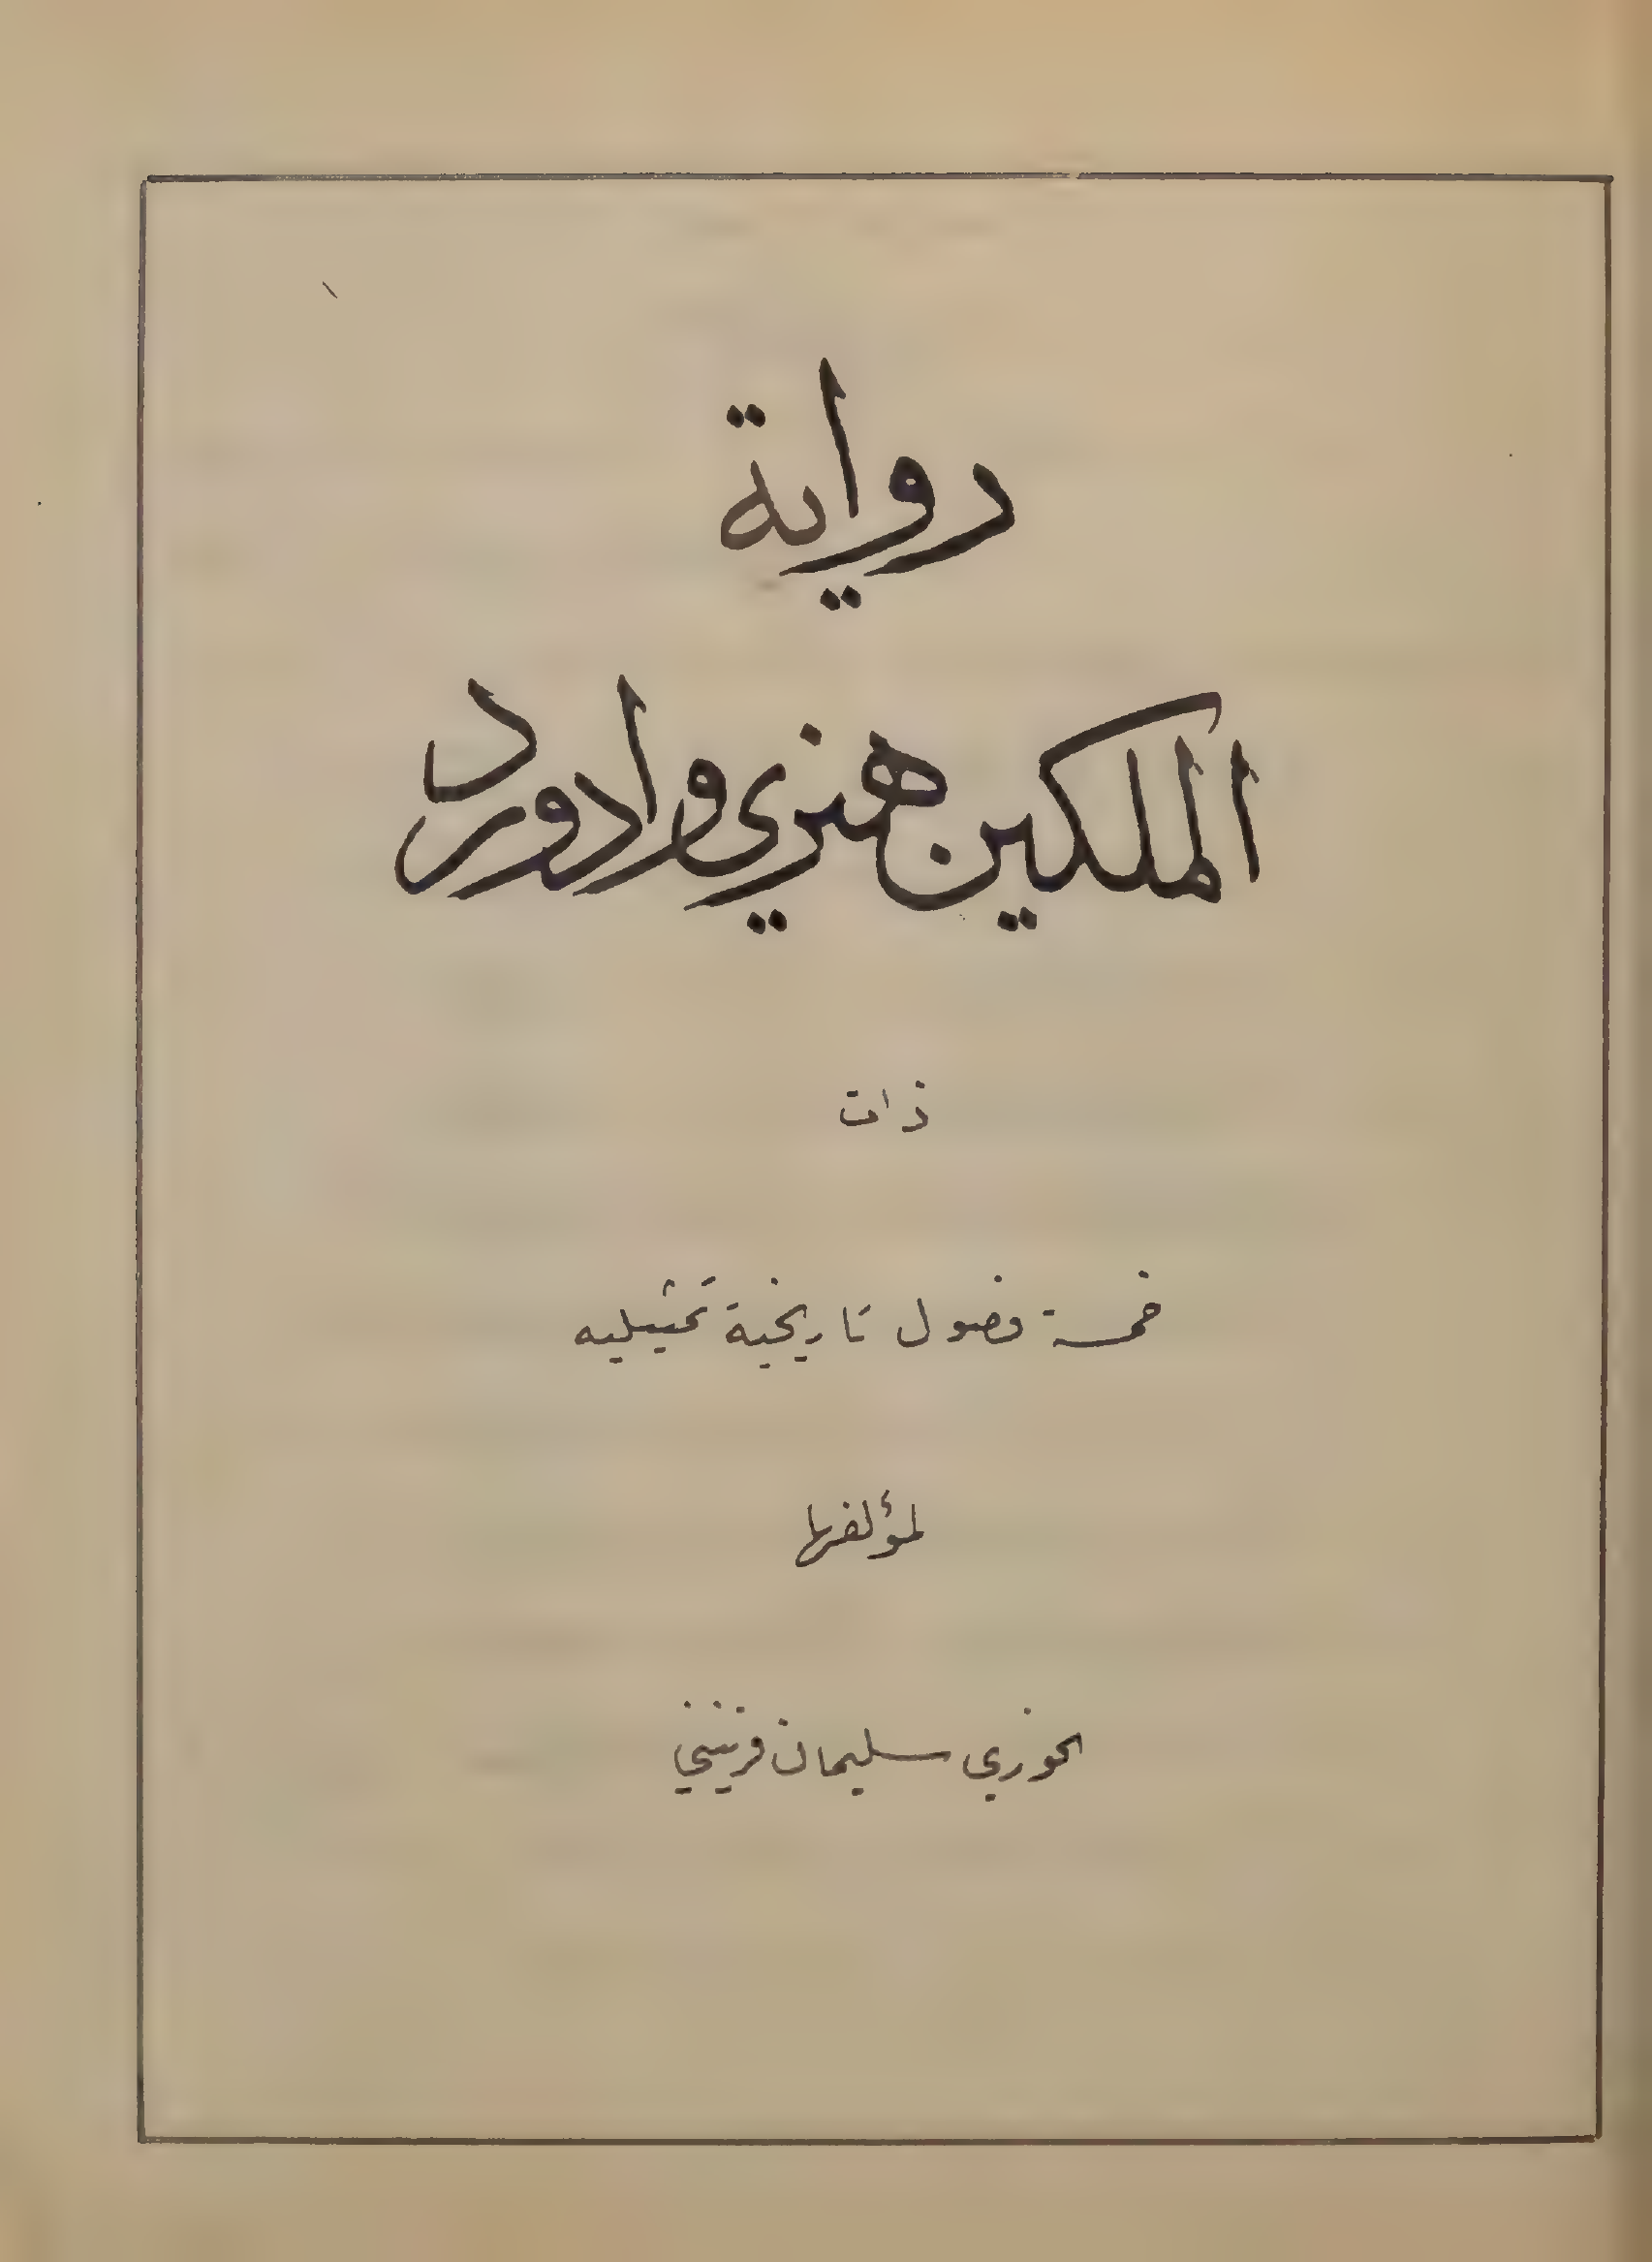 رواية
الملكين هنري وادورد
ذات
خمسة فصول تاريخية تمثيليه
لمؤلفها
الخوري سليمان